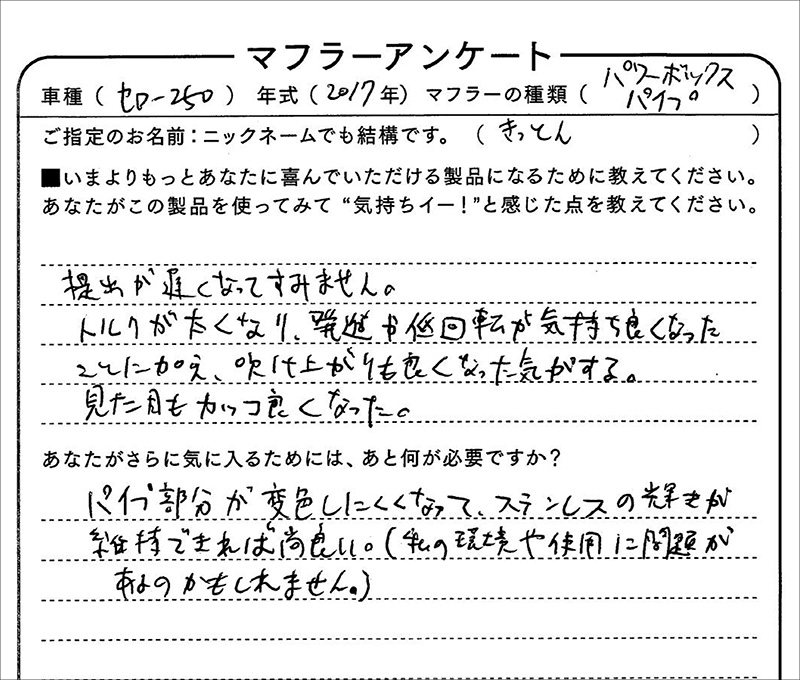 マフラーアンケート
車種（セロー250）年式（2017年）マフラーの種類（パワーボックスパイプ）
ご指定のお名前：ニックネームでも結構です。（きっとん）
■いまよりもっとあなたに喜んでいただける製品になるために教えてください。
あなたがこの製品を使ってみて“気持ちイー！”と感じた点を教えてください。
提出が遅くなってすみません。
トルクが太くなり、発進や低回転が気持ち良くなった
ことに加え、吹け上がりも良くなった気がする。
見た目もカッコ良くなった。
あなたがさらに気に入るためには、あと何が必要ですか？
パイプ部分が変色しにくくなって、ステンレスの輝きが
維持できれば尚良い。（私の環境や使用に問題が
有るのかもしれません。）